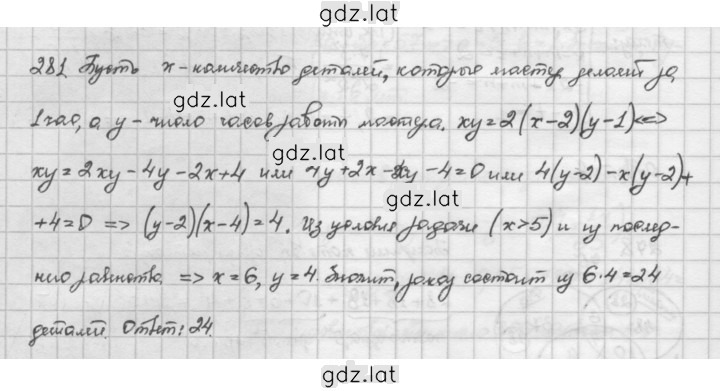 gdz.lat
281 Пусть x - количество деталей, которые мастер делает за
gdz.lat
1 час, а y - число часов работы мастера. xy = 2(x-2)(y-1) <=>
gdz.lat
xy = 2xy - 4y - 2x + 4 или 4y + 2x - xy - 4 = 0 или 4(y-2) - x(y-2) +
gdz.lat
+4 = 0 => (y-2)(x-4) = 4. Из условия задачи (x>5) и из послед-
него равенства => x = 6, y = 4. Значит, заказ состоит из 6·4 = 24
деталей. Ответ: 24.
gdz.lat